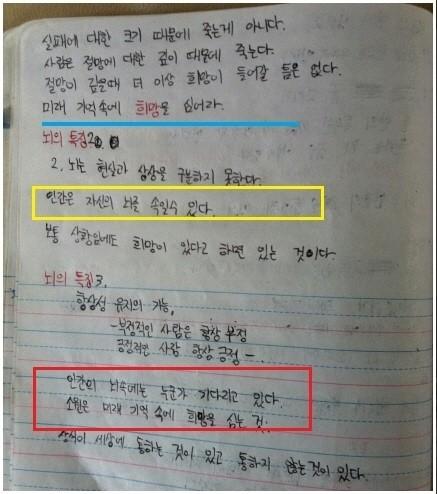 실패에 대한 크기 때문에 죽는게 아니다.
사람은 절망에 대한 깊이 때문에 죽는다.
절망이 깊을때 더 이상 희망이 들어갈 틈은 없다.
미래 기억속에 희망을 심어라.
뇌의 특징2
2. 뇌는 현실과 상상을 구분하지 못한다.
인간은 자신의 뇌를 속일수 있다.
보통 상황임에도 희망이 있다고 하면 있는 것이다.
뇌의 특징3.
항상성 유지의 기능,
-부정적인 사람은 항상 부정
긍정적인 사람 항상 긍정-.
인간의 뇌속에는 누군가 기다리고 있다.
소원은 미래 기억 속에 희망을 심는 것.
상식이 세상에 통하는 것이 있고 통하지 않는것이 있다.